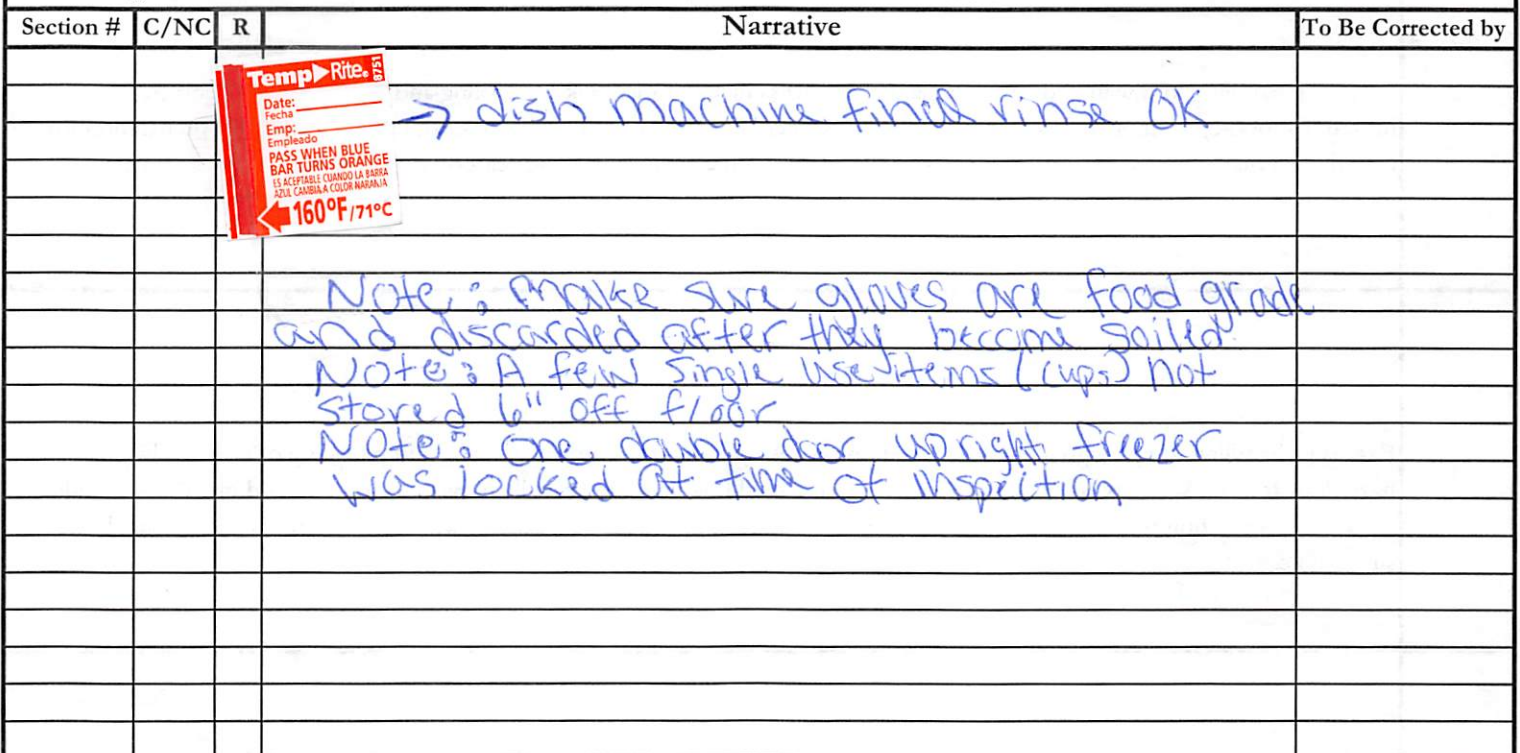 Section # C/NC R Narrative To Be Corrected by
Temp▶Rite® 8751
Date:
Fecha
→ dish machine final rinse OK
Emp:
Empleado
PASS WHEN BLUE
BAR TURNS ORANGE
ES ACEPTABLE CUANDO LA BARRA
AZUL CAMBIA A COLOR NARANJA
160°F/71°C
Note: make sure gloves are food grade
and discarded after they become soiled
Note: A few single use items (cups) not
stored 6" off floor
Note: one double door upright freezer
was locked at time of inspection